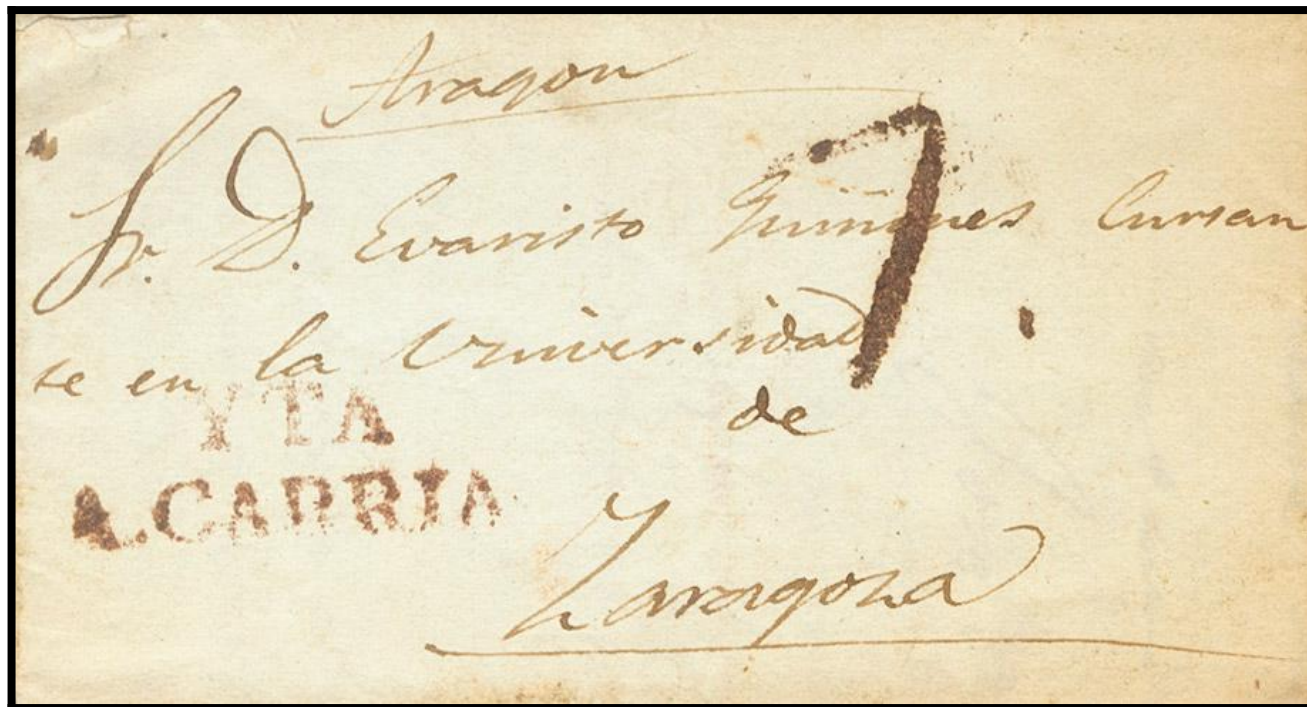 Aragon
7.
Sr. D. Evaristo Quiñones Cursan
te en la Universidad
de
YTA
A.CARRIA
Zaragoza